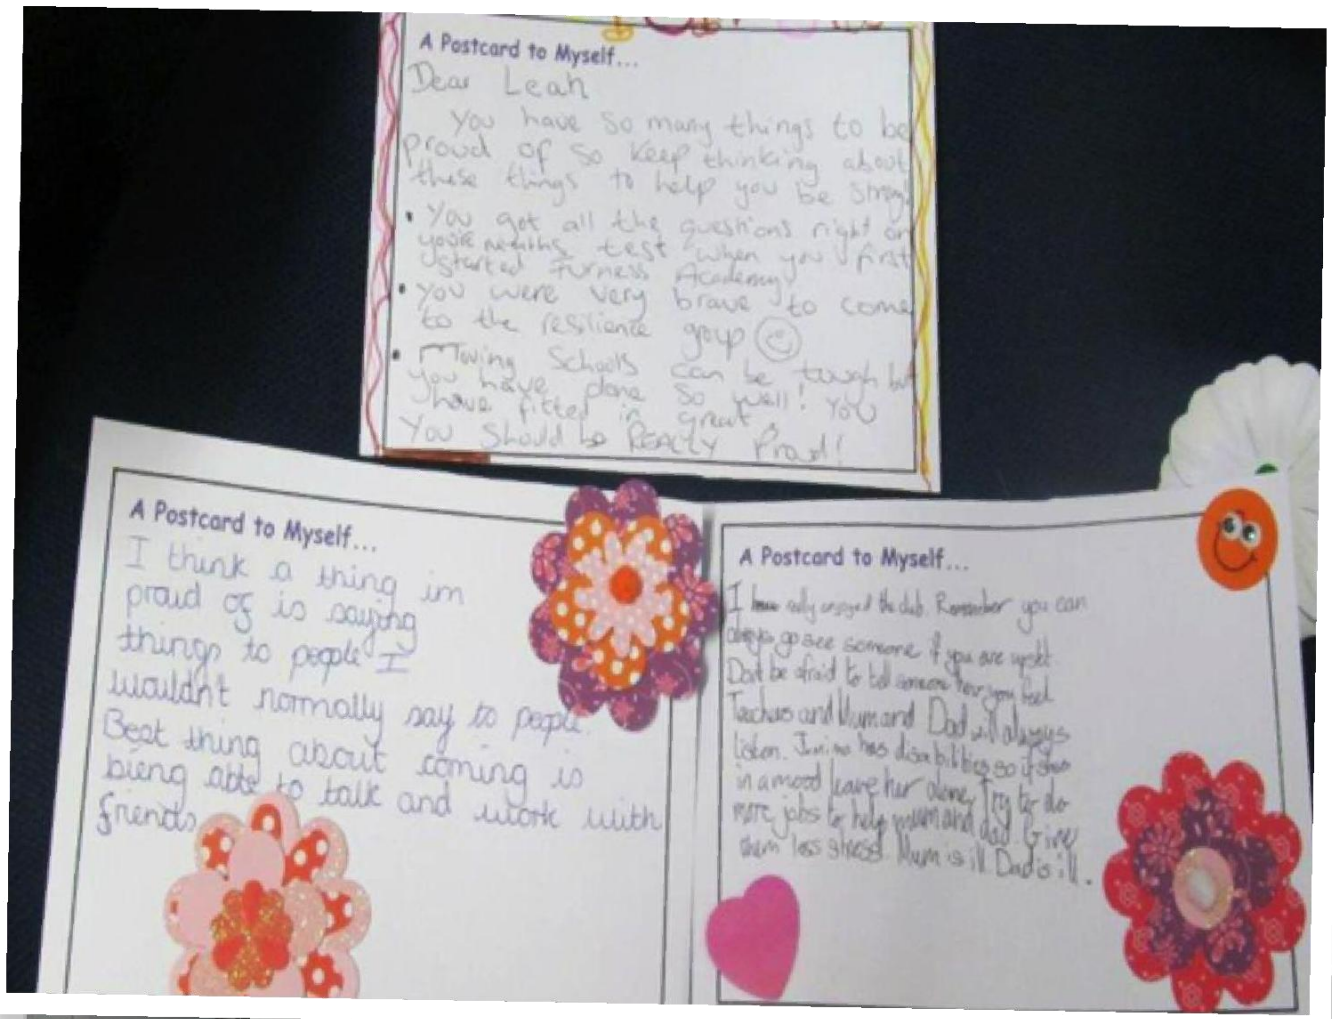 A Postcard to Myself...
Dear Leah
You have so many things to be
proud of so keep thinking about
these things to help you be strong!
• You got all the questions right on
youre maths test when you first
started Furness Academy
• You were very brave to come
to the resilience group
• Moving Schools can be tough but
you have done so well! You
have fitted in great.
You should be REALLY Proud!
A Postcard to Myself...
I think a thing im
proud of is saying
things to people I
wouldn't normally say to people.
Best thing about coming is
bieng able to talk and work with
friends
A Postcard to Myself...
I really enjoyed the club. Remember you can
always go see someone if you are upset.
Dont be afraid to tell someone how you feel
Teachers and Mum and Dad will always
listen. has disabilities so if shes
in a mood leave her alone, Try to do
more jobs to help mum and dad. Give
them less stress. Mum is ill. Dad is ill.